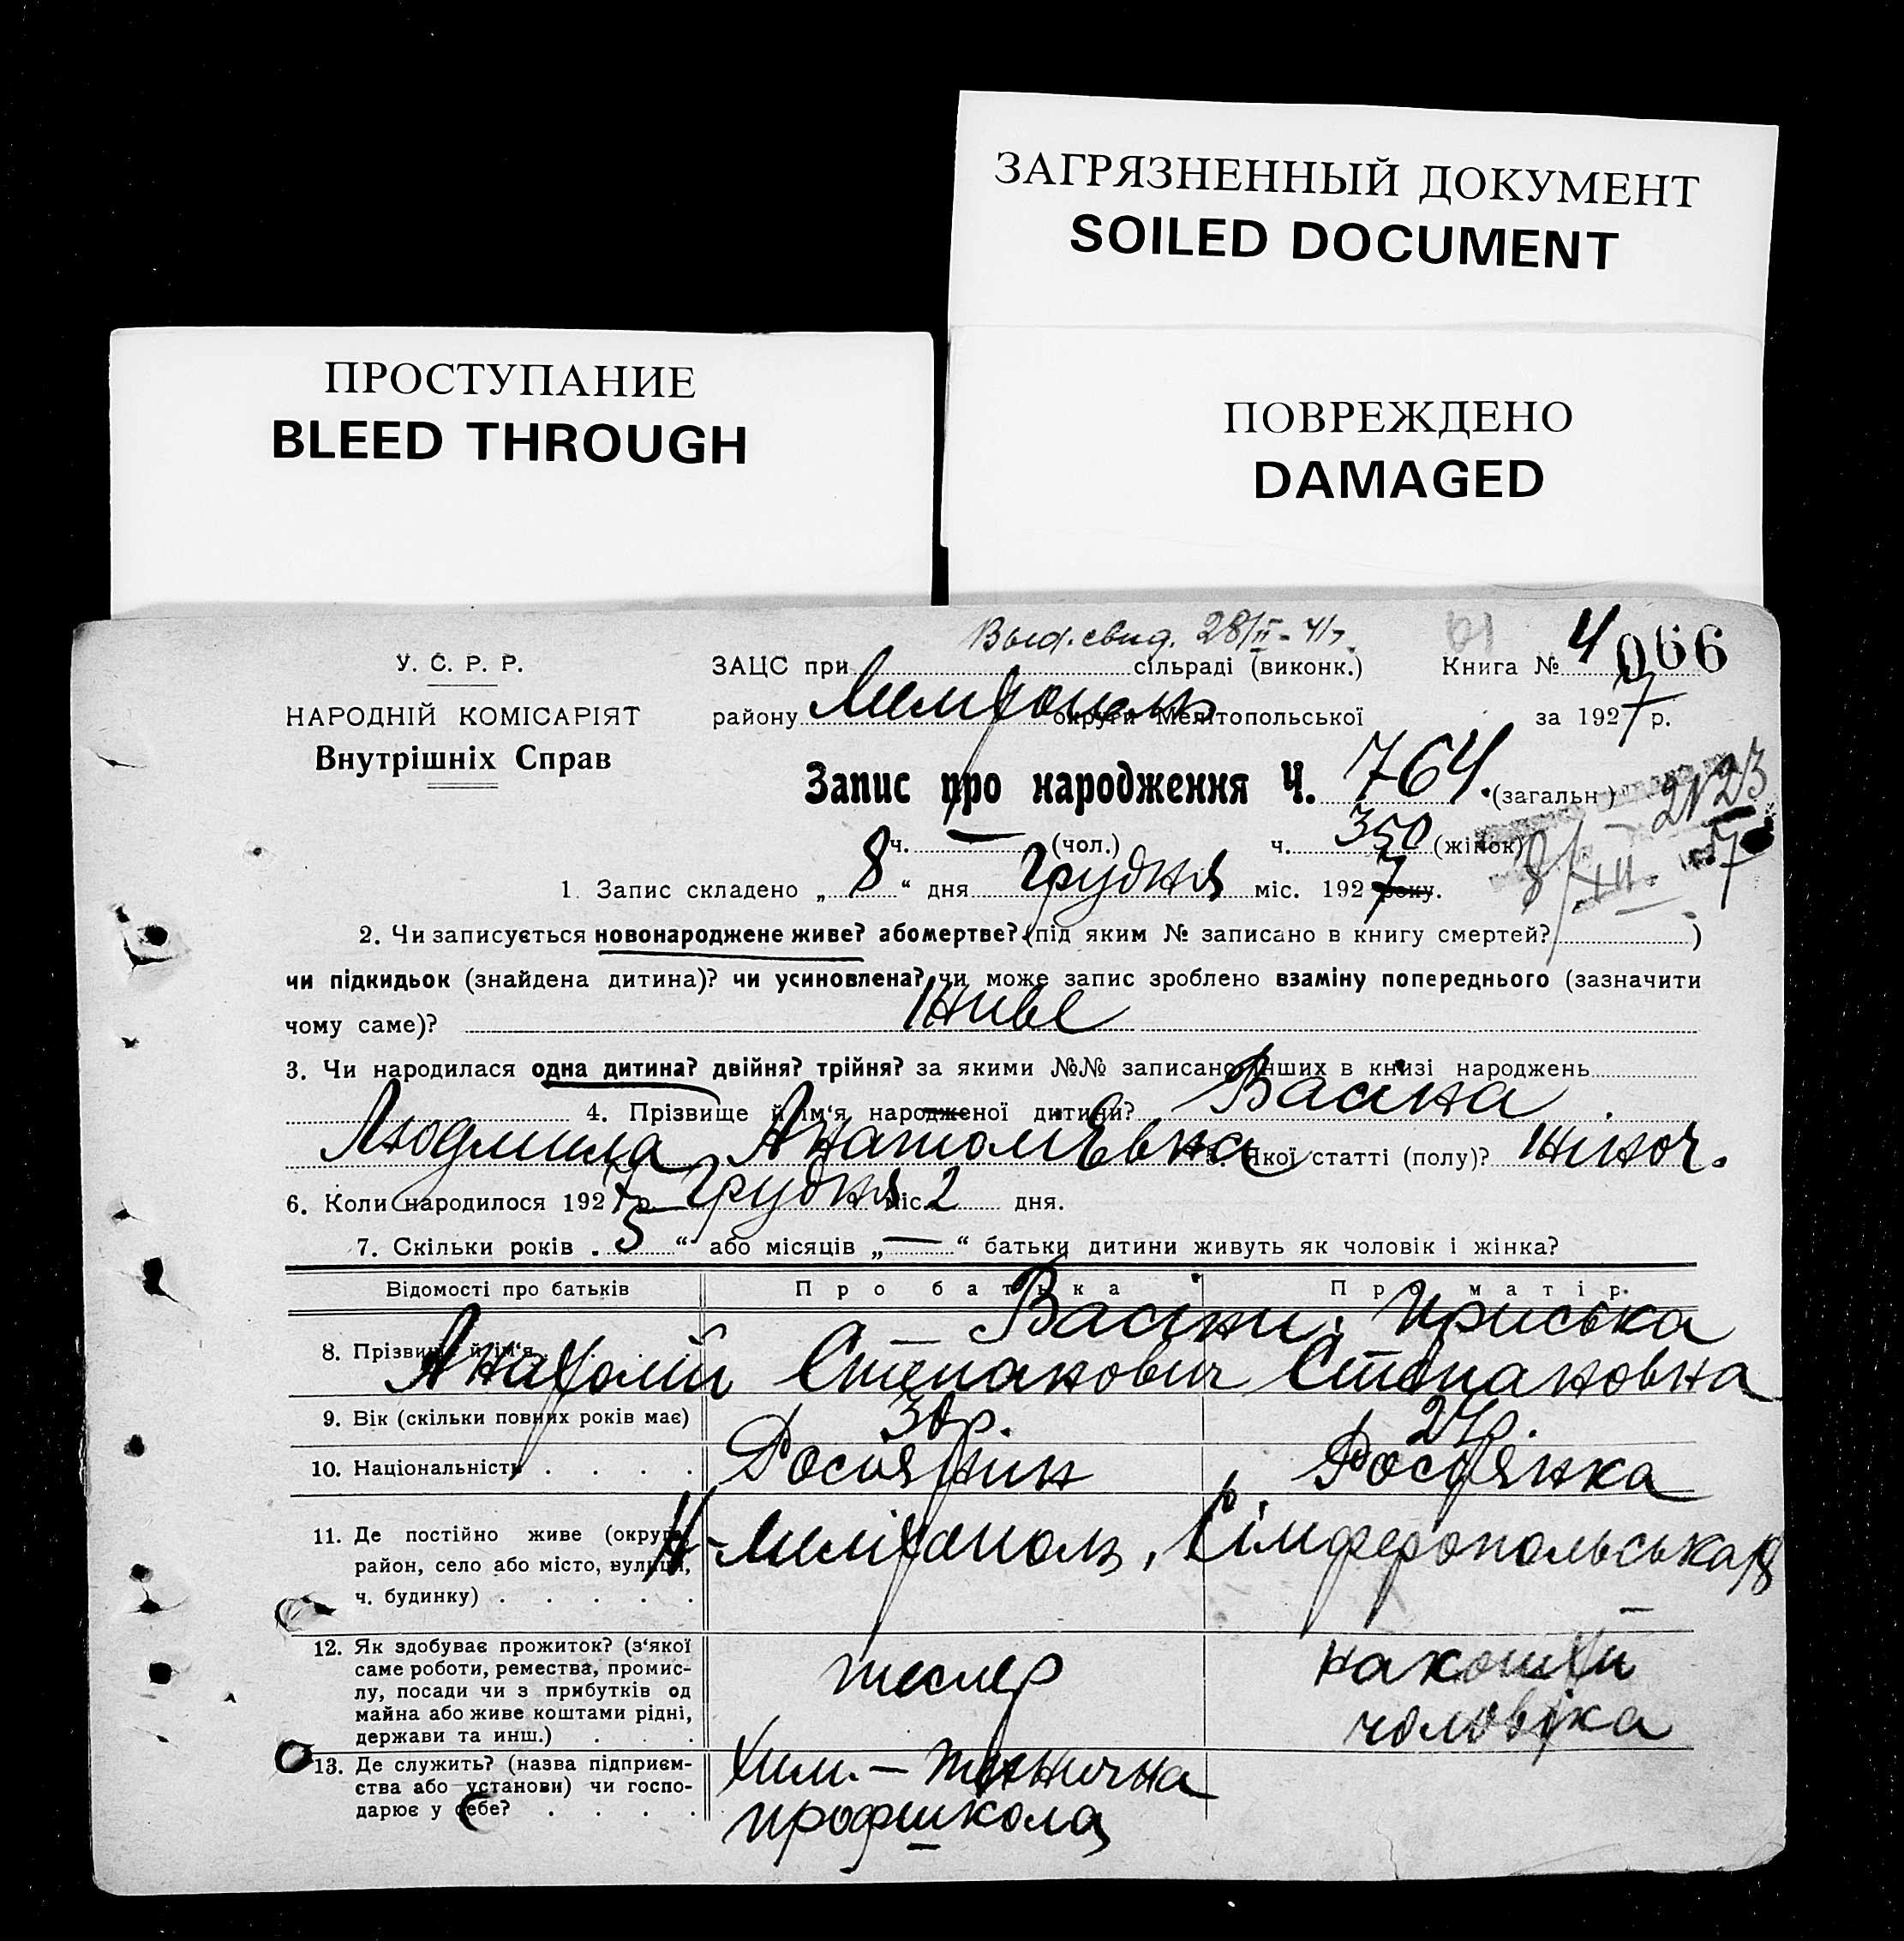 ЗАГРЯЗНЕННЫЙ ДОКУМЕНТ
SOILED DOCUMENT
ПРОСТУПАНИЕ
BLEED THROUGH
ПОВРЕЖДЕНО
DAMAGED
Выд. свид. 28/II - 41г.
У. С. Р. Р.
НАРОДНІЙ КОМІСАРІЯТ
Внутрішніх Справ
ЗАЦС при сільраді (виконк.) Книга № 4 066
району округи Мелітопольської за 1927 р.
Запис про народження Ч. 764. (загальн.)
ч. — (чол.) ч. 350 (жінок)
1. Запис складено „ 8 “ дня Грудня міс. 1927 року.
2. Чи записується новонароджене живе? або мертве? (під яким № записано в книгу смертей? )
чи підкидьок (знайдена дитина)? чи усиновлена? чи може запис зроблено взаміну попереднього (зазначити
чому саме)? Живе
3. Чи народилася одна дитина? двійня? трійня? за якими №№ записано інших в книзі народжень
4. Прізвище й ім‘я народженої дитини? Васина
Людмила Анатолієвна 5. Якої статті (полу)? жіноч.
6. Коли народилося 1927 р. Грудня міс. 2 дня.
7. Скільки років „ 5 “ або місяців „ — “ батьки дитини живуть як чоловік і жінка?
Відомості про батьків Про батька Про матір.
8. Прізвище й ім‘я Васини. Ириська
Анатолій Степанович Степановна
9. Вік (скільки повних років має) 30р. 27р.
10. Національність Росіянин Росіянка
11. Де постійно живе (округа,
район, село або місто, вулиця,
ч. будинку)
Мелітополь, Сімферопольська
12. Як здобуває прожиток? (з‘якої
саме роботи, ремества, промис-
лу, посади чи з прибутків од
майна або живе коштами рідні,
держави та инш.)
тесляр на кошти
чоловіка
13. Де служить? (назва підприєм-
ства або установи) чи госпо-
дарює у себе?
Хим. — технична
профшкола